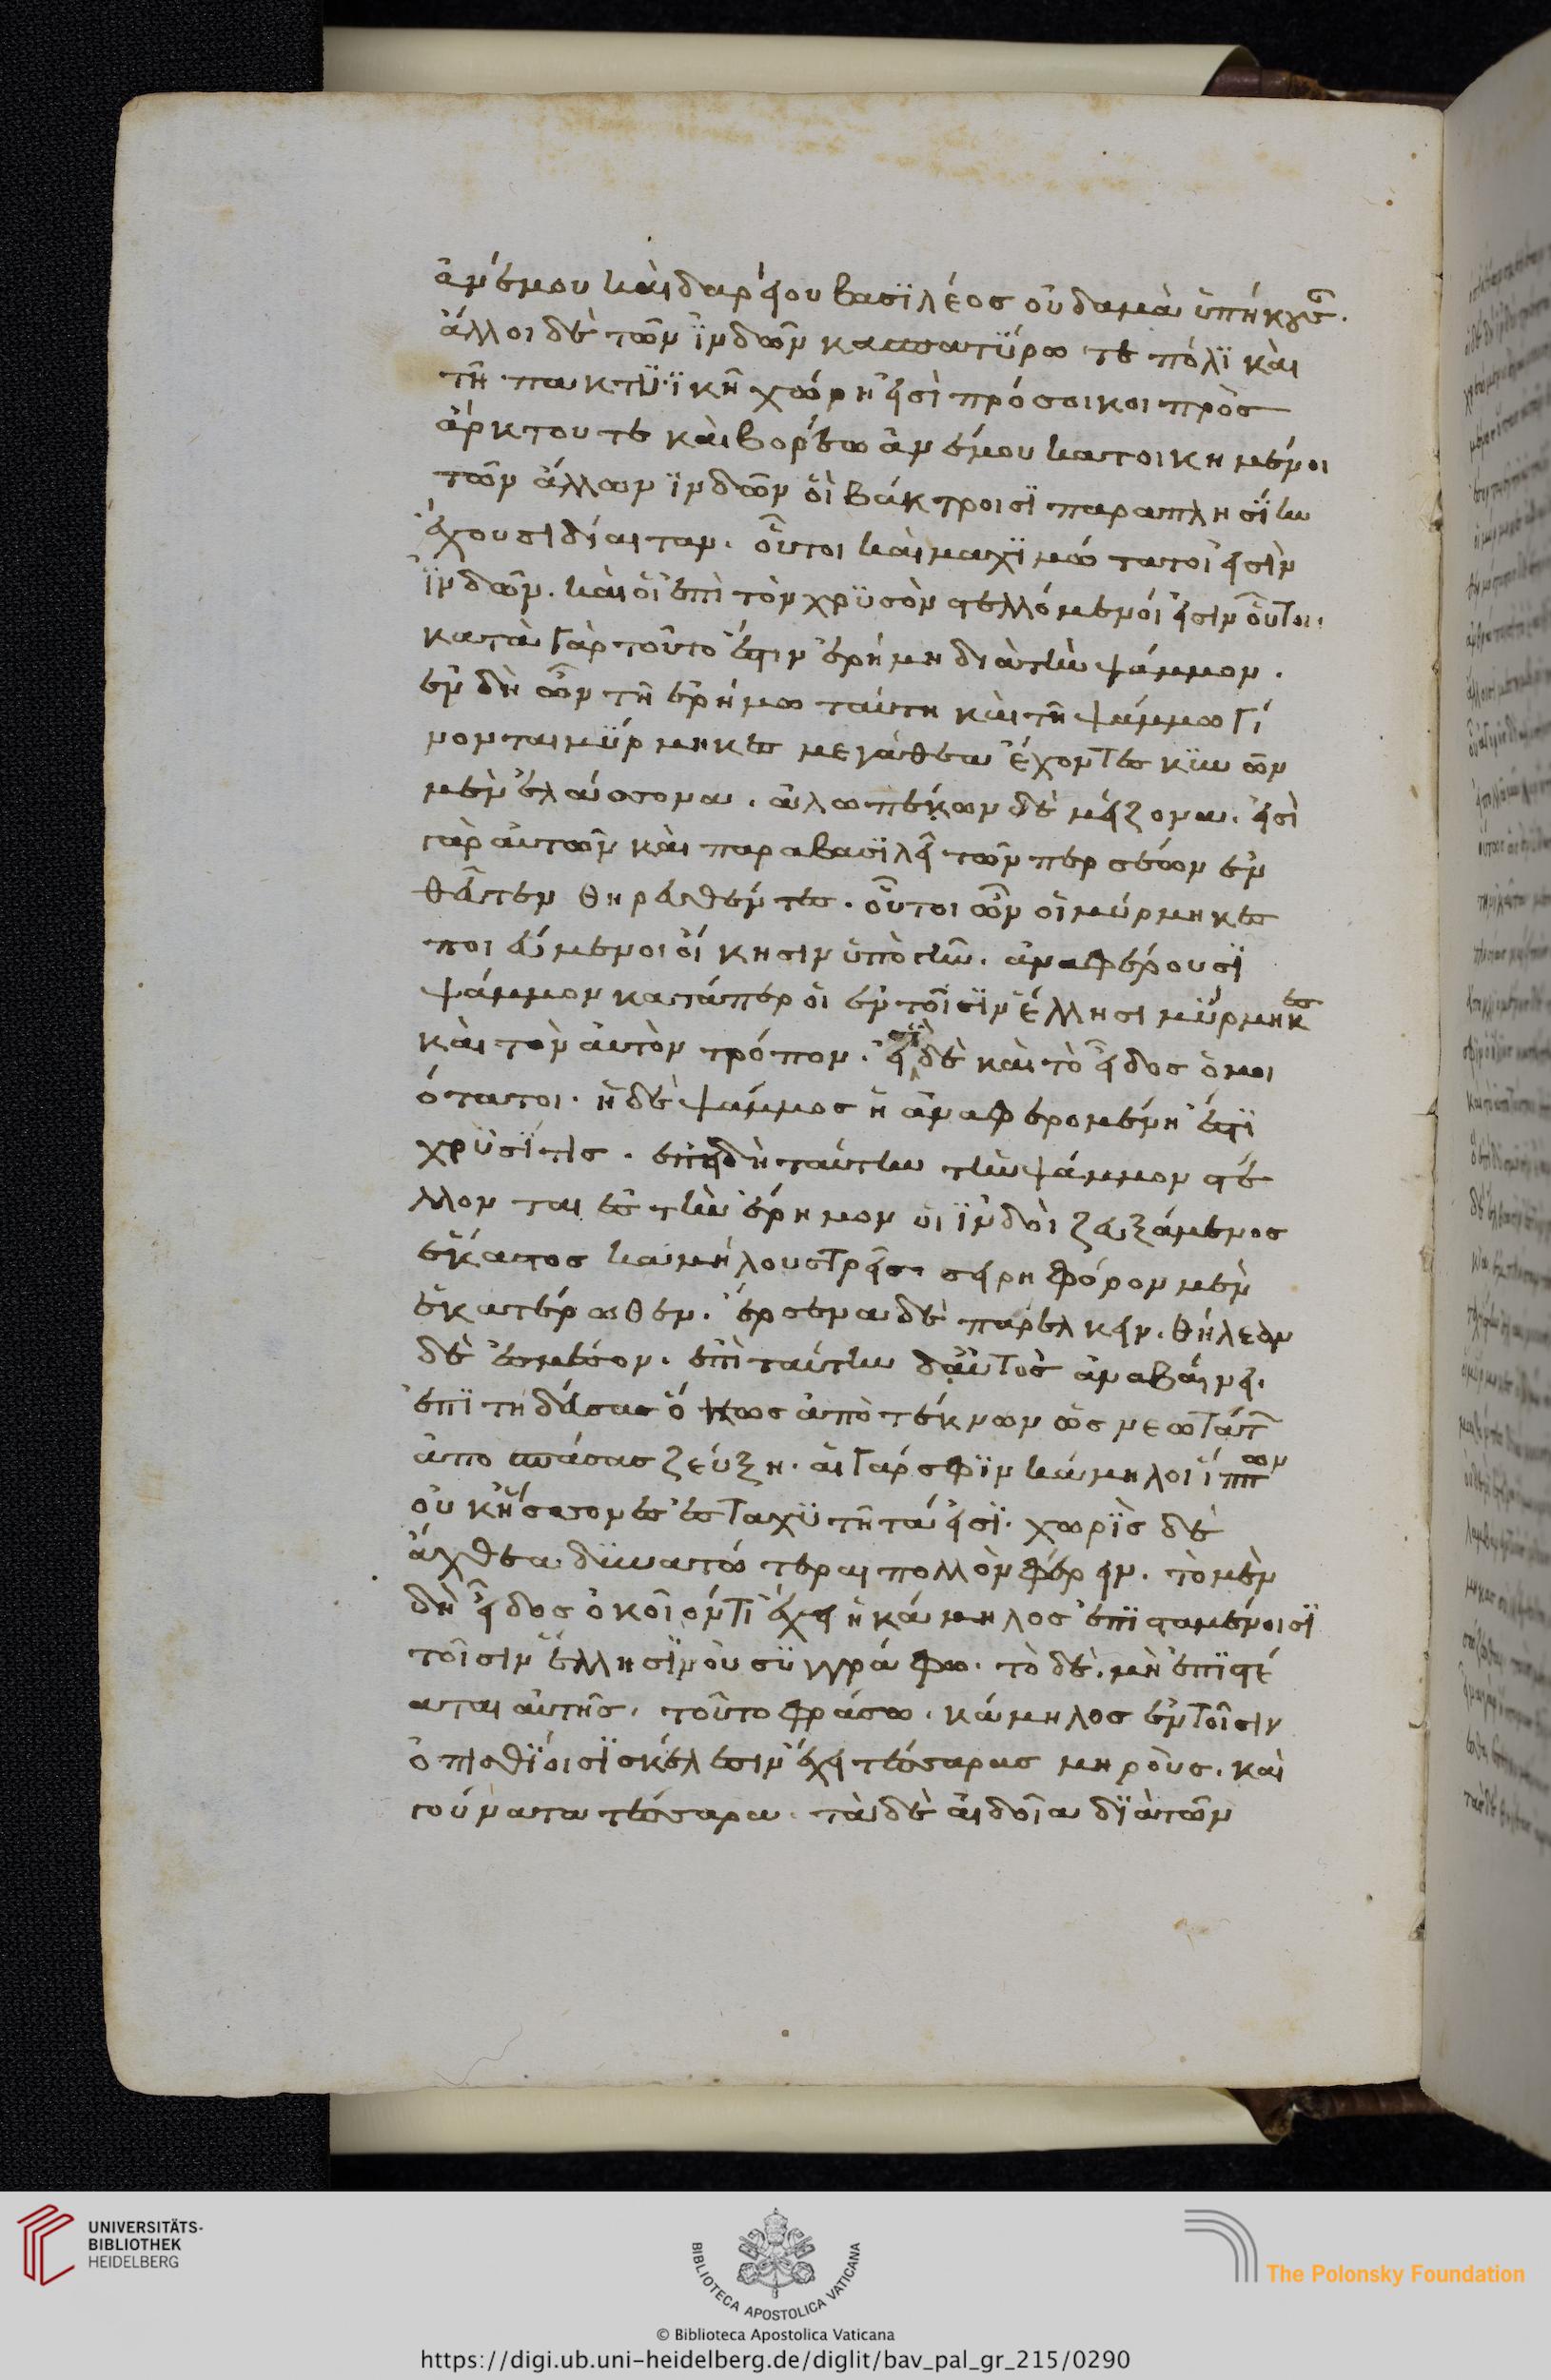 ἀνέμου καὶ δαρείου βασϊλέοσ οὐδαμὰ ὑπήκουσ.
ἄλλοι δὲ τῶν ἰνδῶν κασπατύρω τε πόλϊ καὶ
τῆ πακτϋϊκῆ χώρη εἰσὶ πρόσοικοι πρὸσ
ἄρκτου τε καὶ βορέω ἀνέμου κατοικημένοι
τῶν ἄλλων ἰνδῶν οἳ βάκτροισϊ παραπλησΐην
ἔχουσι δίαιταν. οὗτοι καὶ μαχϊμώτατοί εἰσιν
ἰνδῶν. καὶ οἱ ἐπὶ τὸν χρϋσὸν στελλόμενοί εἰσιν οὗτοι.
κατὰ γὰρ τοῦτο ἔστιν ἐρήμη διὰ τὴν ψάμμον.
ἐν δὴ ὦν τῆ ἐρήμω ταύτη καὶ τῆ ψάμμω γί
νονται μύρμηκεσ μεγάθεα ἔχοντεσ κϋνῶν
μὲν ἐλάσσονα. ἀλωπέκων δὲ μείζονα. εἰσὶ
γὰρ αὐτῶν καὶ παρα βασϊλεῖ τῶν περσέων ἐν
θεῦτεν θηρευθέντεσ. οὗτοι ὦν οἱ μύρμηκεσ
ποιεύμενοι οἴκησιν ὑπὸ γῆν. ἀναφέρουσϊ
ψάμμον κατάπερ οἱ ἐν τοῖσϊν ἕλλησι μύρμηκεσ
καὶ τὸν αὐτὸν τρόπον. εἰσῒ δὲ καὶ τὸ εἶδοσ ὁμοι
ότατοι. ἡ δὲ ψάμμοσ ἡ ἀναφερομένη ἐστϊ
χρϋσῖτισ. ἐπειδὴ ταύτην τὴν ψάμμον στέ
λλονται ἐσ τὴν ἔρημον οἱ ἰνδοὶ ζευξάμενοσ
ἕκαστοσ καμήλουσ τρεῖσ. σειρηφόρον μὲν
ἑκατέρωθεν. ἔρσενα δὲ παρέλκειν. θήλεαν
δὲ ἐσ μέσον. ἐπὶ ταύτην δαὐτὸσ ἀναβαίνει.
ἐπϊτηδεύσασ ὅκωσ ἀπὸ τέκνων ὡσ νεωτάτ
ἀποσπάσασ ζεύξη. αἱ γάρ σφϊν κάμηλοι ἵππων
οὐκ ἥσσονεσ ἐσ ταχϋτῆτά εἰσϊ. χωρὶσ δὲ
ἄχθεα δϋνατώτεραι πολλὸν φέρειν. τὸ μὲν
δὴ εἶδοσ ὁκοῖόν τι ἔχει ἡ κάμηλοσ ἐπϊσταμένοισϊ
τοῖσιν ἕλλησϊν οὐ συγγράφω. τὸ δὲ. μὴ ἐπϊστέ
αται αὐτῆσ. τοῦτο φράσω. κάμηλοσ ἐν τοῖσιν
ὀπισθΐοισϊ σκέλεσιν ἔχει τέσσαρασ μηροὺσ. καὶ
γούνατα τέσσαρα. τὰ δὲ αἰδοῖα δϊὰ τῶν
UNIVERSITÄTS-
BIBLIOTHEK
HEIDELBERG
BIBLIOTECA APOSTOLICA VATICANA
The Polonsky Foundation
© Biblioteca Apostolica Vaticana
https://digi.ub.uni-heidelberg.de/diglit/bav_pal_gr_215/0290